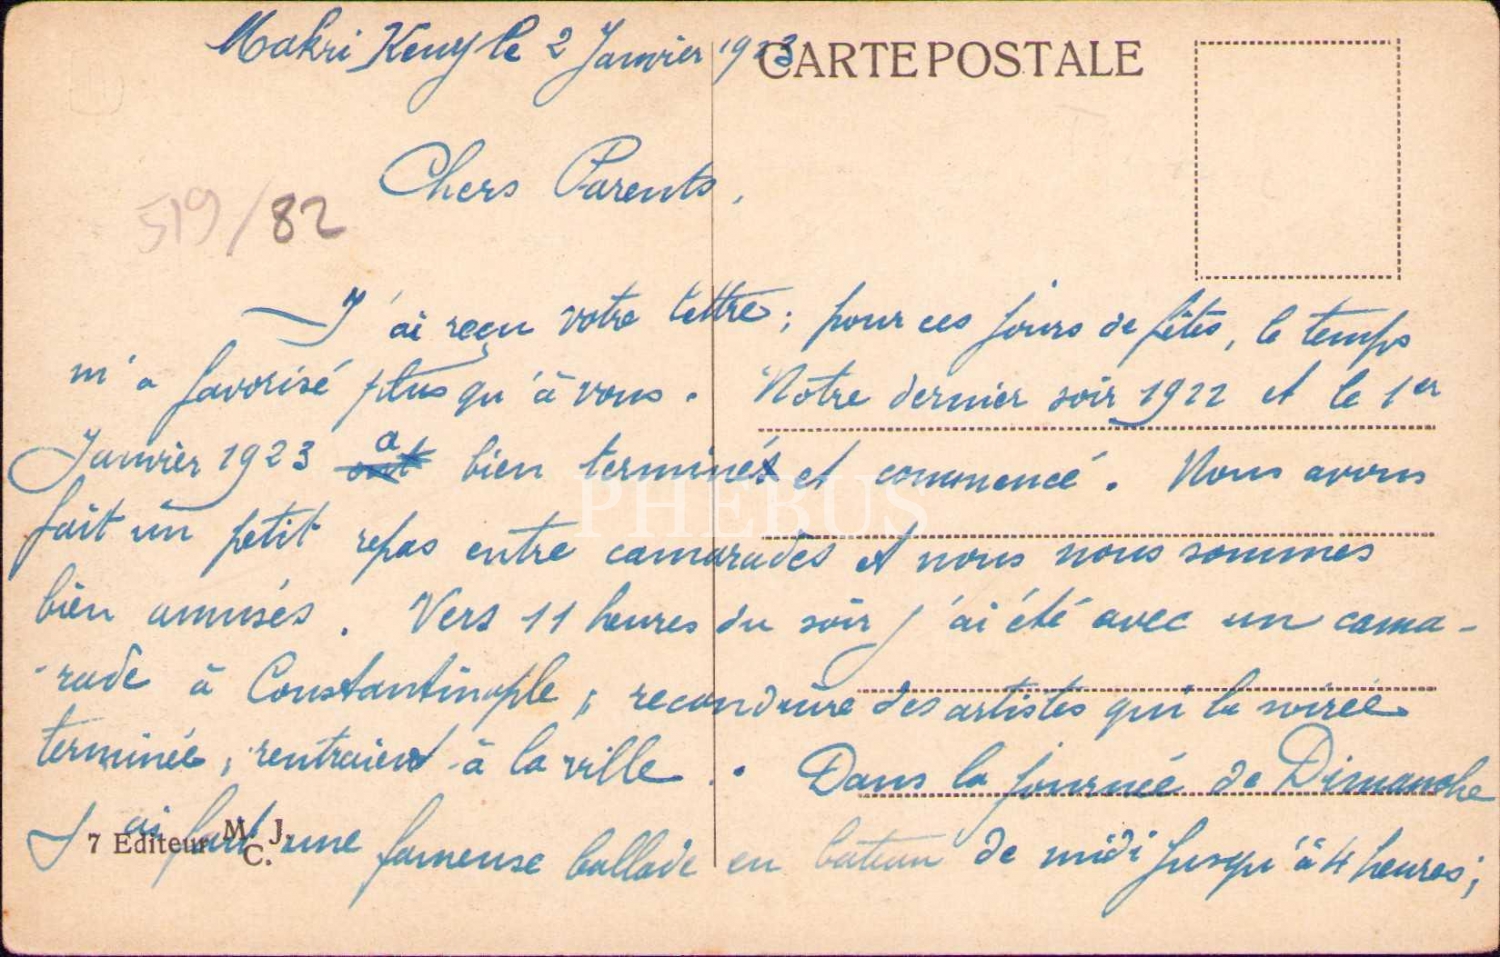 Makri Keuy le 2 Janvier 1923
CARTE POSTALE
Chers Parents,
519/82
J'ai reçu votre lettre; pour ces jours de fêtes, le temps
m'a favorisé plus qu'à vous. Notre dernier soir 1922 et le 1er
Janvier 1923 a bien terminé et commencé. Nous avons
fait un petit repas entre camarades et nous nous sommes
bien amusés. Vers 11 heures du soir j'ai été avec un cama-
-rade à Constantinople, reconduire des artistes qui la soirée
terminée, rentraient à la ville. Dans la journée de Dimanche
J'ai fait une fameuse ballade en bateau de midi jusqu'à 4 heures;
7 Editeur M. J. C.
PHEBUS